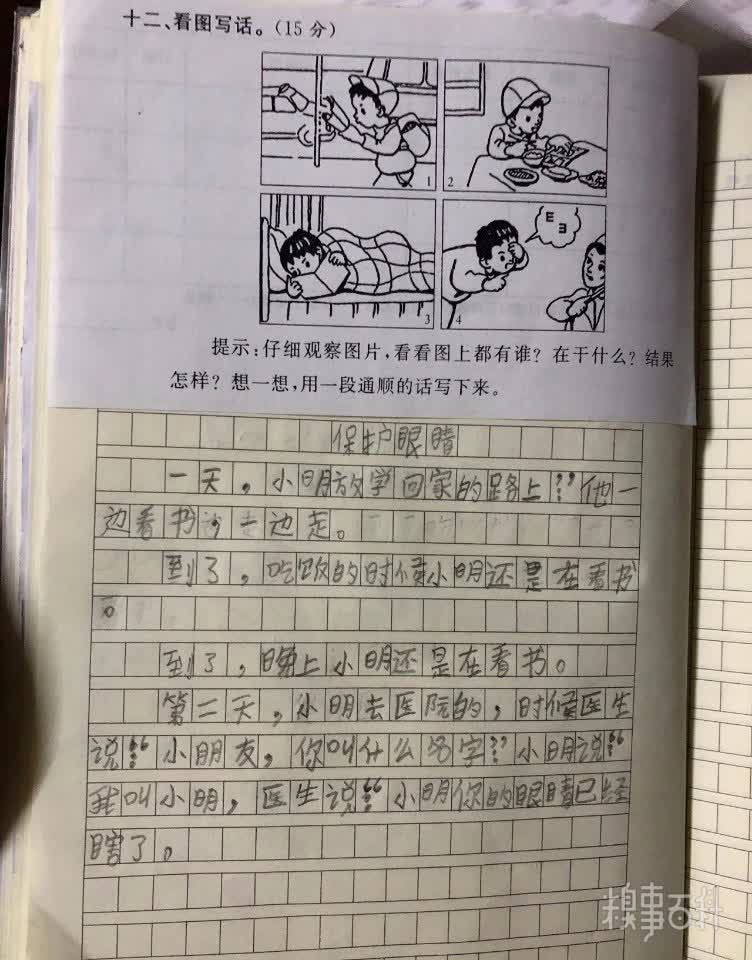 十二、看图写话。(15分)
1
2
E
ヨ
3
4
提示:仔细观察图片,看看图上都有谁?在干什么?结果
怎样?想一想,用一段通顺的话写下来。
保护眼睛
一天,小明放学回家的路上:”他一
边看书,一边走。
到了,吃饭的时候小明还是在看书
。
到了,晚上小明还是在看书。
第二天,小明去医院的,时候医生
说:“小朋友,你叫什么名字:”小明说:“
我叫小明,医生说:“小明你的眼睛已经
瞎了。
糗事百科